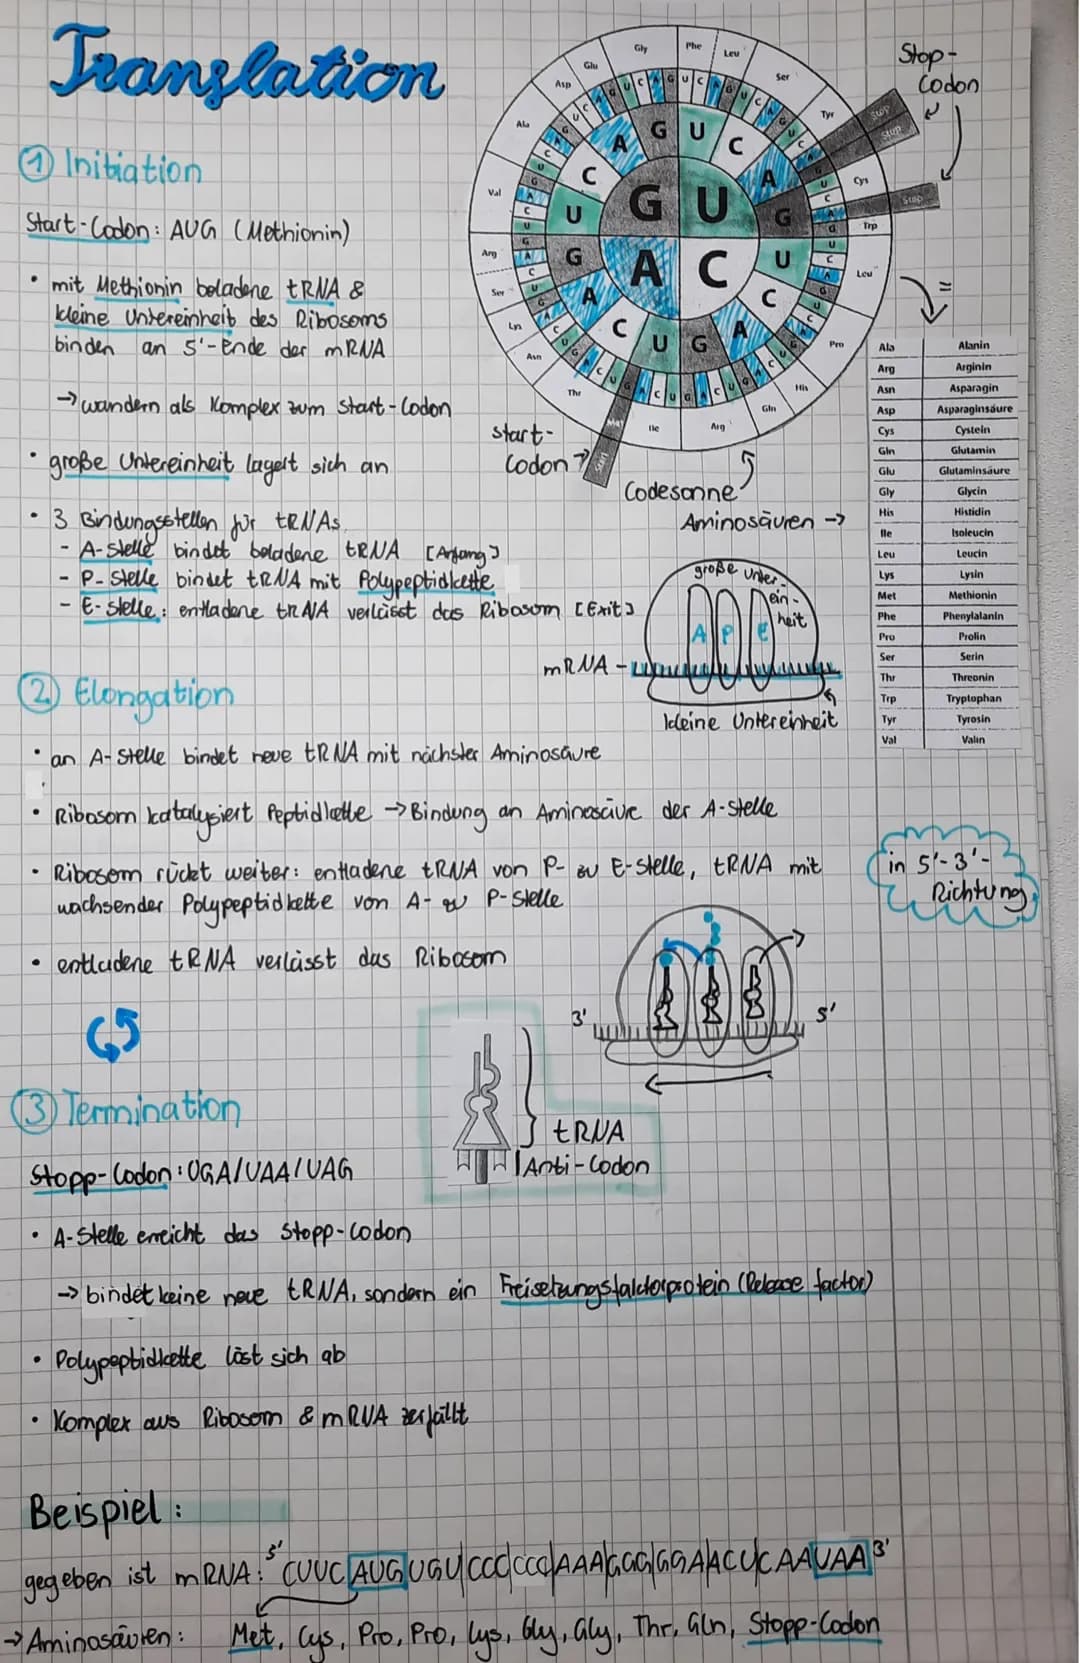 Translation
① Initiation
Start-Codon: AUG (Methionin)
• mit Methionin beladene tRNA &
kleine Untereinheit des Ribosoms
binden an 5'-Ende der mRNA
→ wandern als Komplex zum Start-Codon
• große Untereinheit lagert sich an
• 3 Bindungsstellen für tRNAs
- A-Stelle bindet beladene tRNA [Anfang]
- P-Stelle bindet tRNA mit Polypeptidkette
- E-Stelle: entladene tRNA verlässt das Ribosom [Exit]
Stop-
Codon
Gly Phe Leu Ser Tyr Stop Stop Cys Stop Trp Leu Pro His Gln Arg Ile Thr Asn Lys Ser Arg Val Ala Asp Glu
G U
A C
Start-
Codon
Codesonne
Aminosäuren →
=
Ala Alanin
Arg Arginin
Asn Asparagin
Asp Asparaginsäure
Cys Cystein
Gln Glutamin
Glu Glutaminsäure
Gly Glycin
His Histidin
Ile Isoleucin
Leu Leucin
Lys Lysin
Met Methionin
Phe Phenylalanin
Pro Prolin
Ser Serin
Thr Threonin
Trp Tryptophan
Tyr Tyrosin
Val Valin
große Unter-
ein-
heit
A P E
mRNA
kleine Untereinheit
② Elongation
• an A-Stelle bindet neue tRNA mit nächster Aminosäure
• Ribosom katalysiert Peptidkette → Bindung an Aminosäure der A-Stelle
• Ribosom rückt weiter: entladene tRNA von P- zu E-Stelle, tRNA mit
wachsender Polypeptidkette von A- zu P-Stelle
in 5'-3'-
Richtung
• entladene tRNA verlässt das Ribosom
3' 5'
tRNA
Anti-Codon
③ Termination
Stopp-Codon: UGA/UAA/UAG
• A-Stelle erreicht das Stopp-Codon
→ bindet keine neue tRNA, sondern ein Freisetzungsfaktorprotein (Release factor)
• Polypeptidkette löst sich ab
• Komplex aus Ribosom & mRNA zerfällt
Beispiel:
gegeben ist mRNA: 5' CUUC AUG UGU|CCC|CCC|AAA|GGG|GGA|ACU|CAA UAA 3'
→ Aminosäuren: Met, Cys, Pro, Pro, Lys, Gly, Gly, Thr, Gln, Stopp-Codon